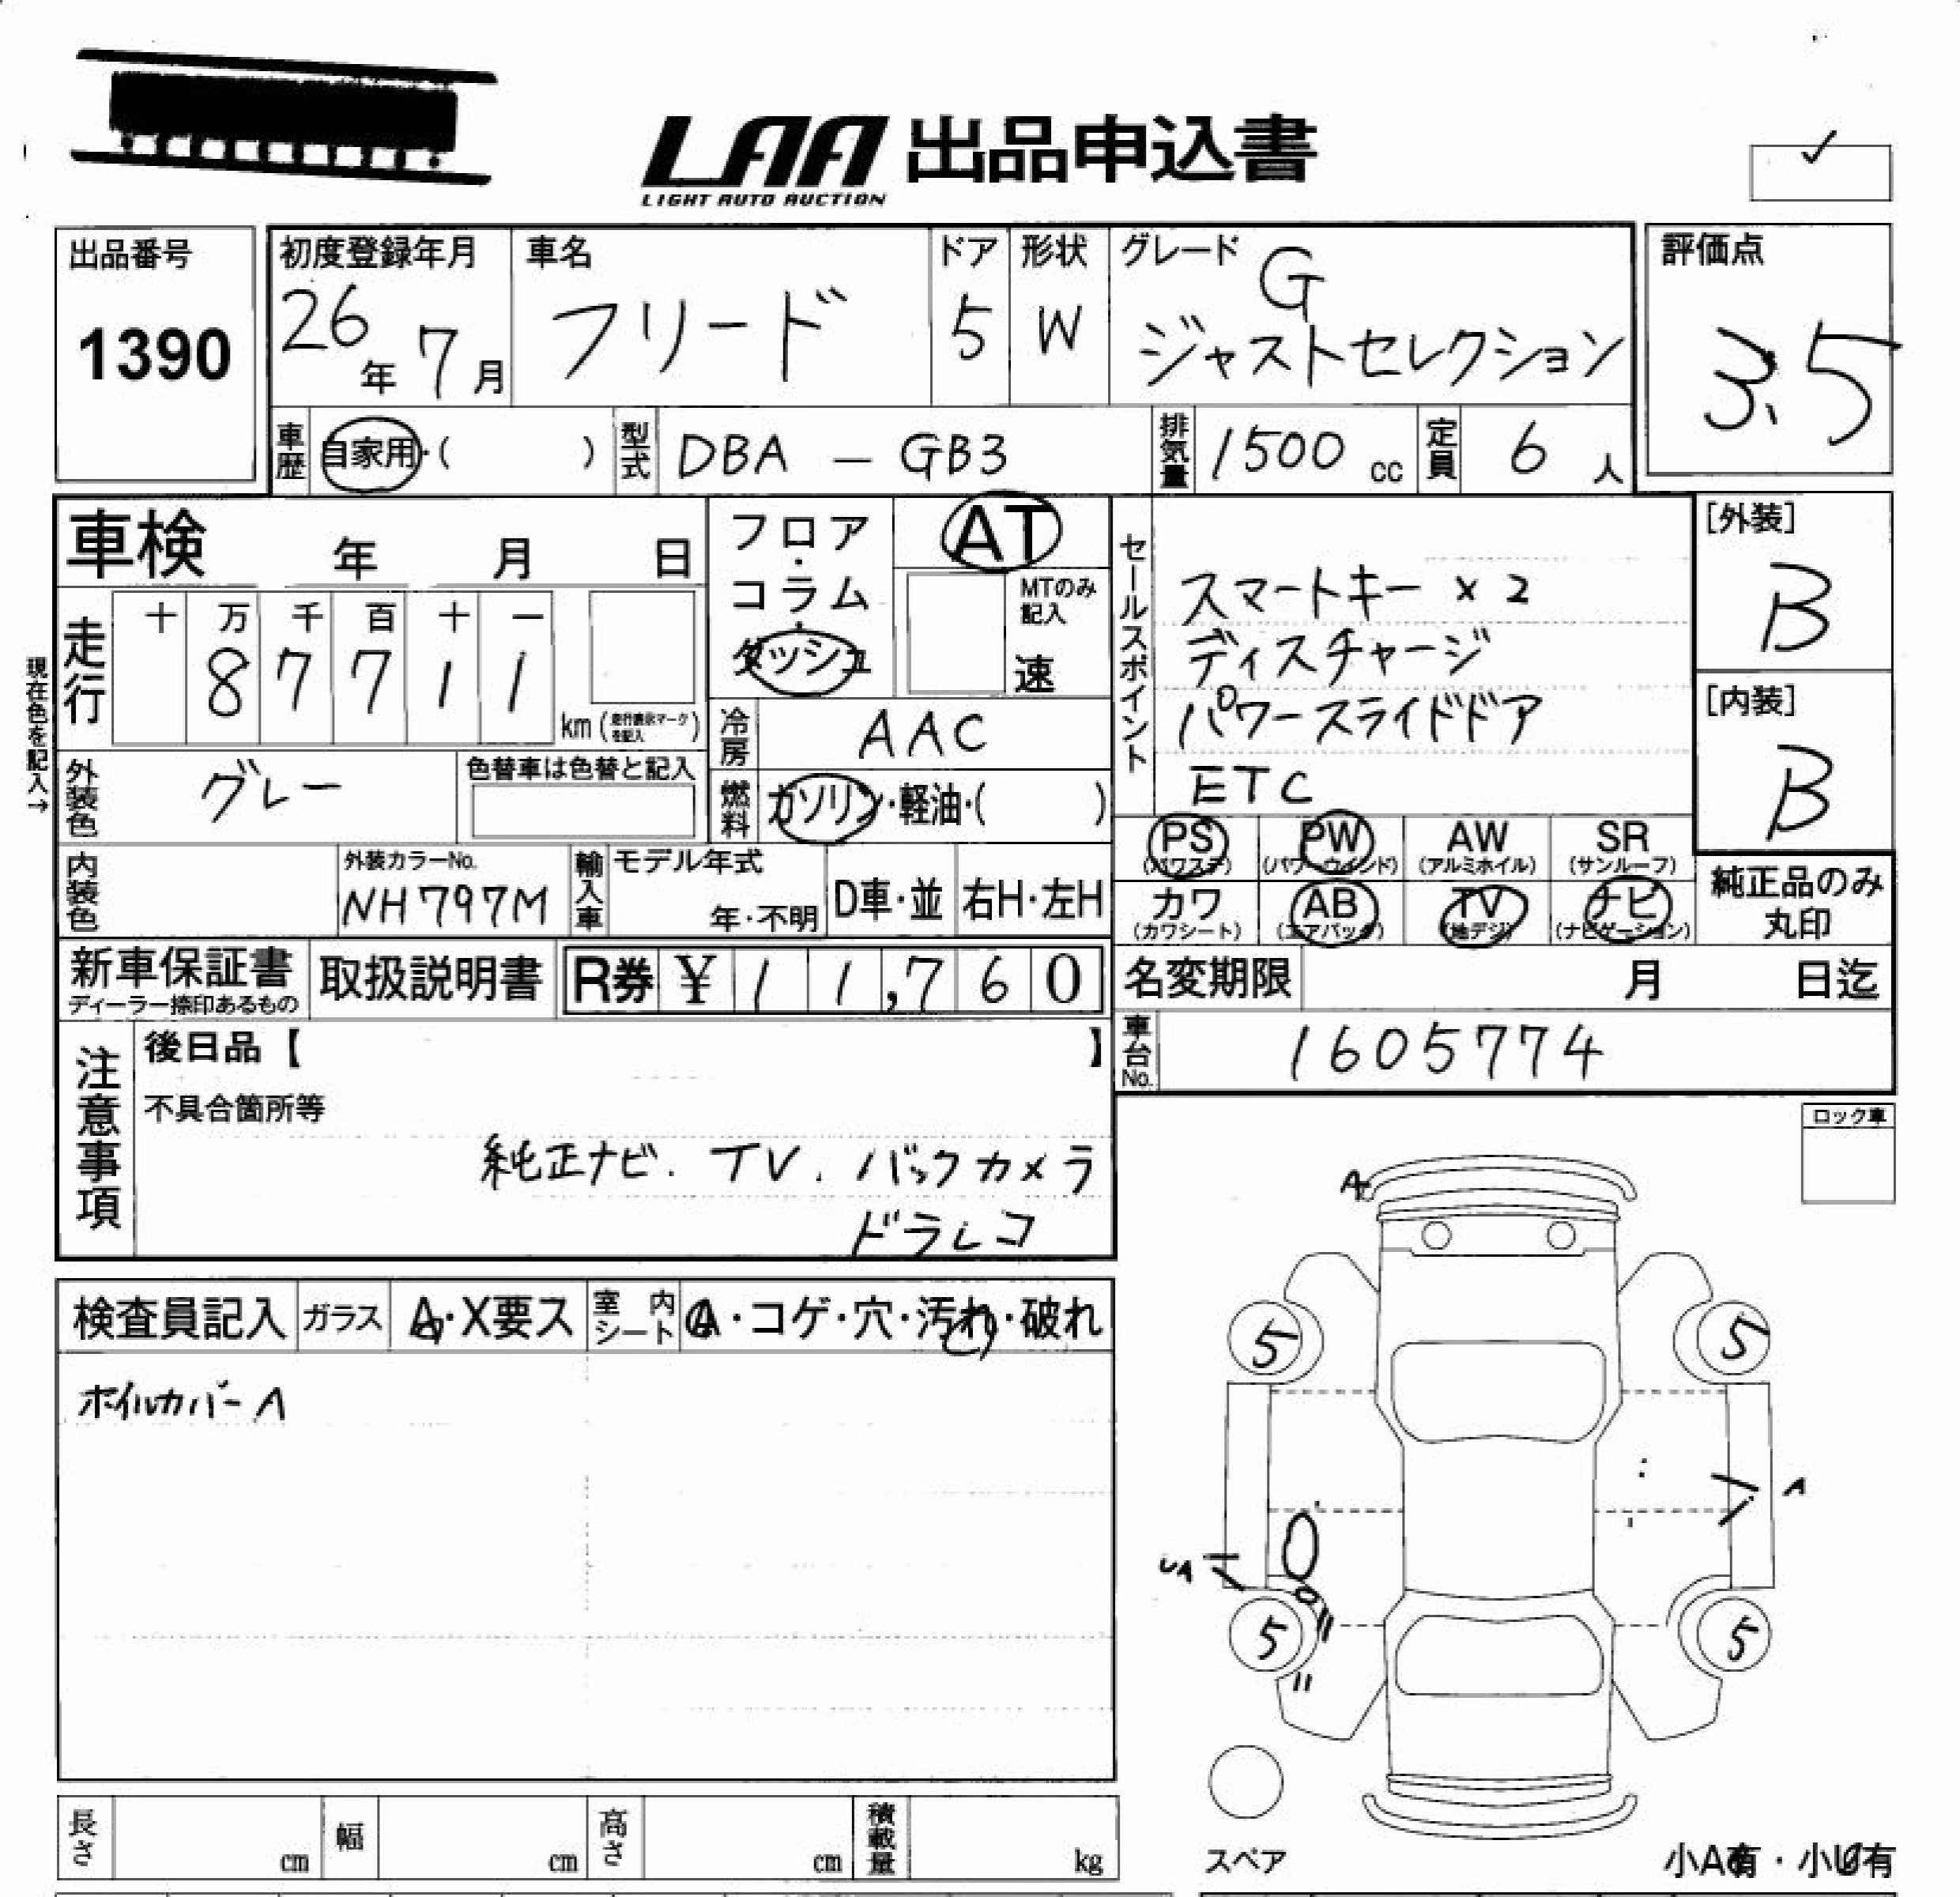 LAA 出品申込書
LIGHT AUTO AUCTION
出品番号
1390
初度登録年月
26年 7月
車名
フリード
ドア
5
形状
W
グレード
G
ジャストセレクション
評価点
3.5
車歴 自家用・( )
型式 DBA - GB3
排気量 1500 cc
定員 6 人
車検 年 月 日
フロア・コラム・ダッシュ
AT
MTのみ記入
速
セールスポイント
スマートキー ×2
ディスチャージ
パワースライドドア
ETC
[外装]
B
[内装]
B
現在色を記入→
走行
十 万 千 百 十 一
8 7 7 1 1
km (走行表示マークを記入)
冷房 AAC
燃料 ガソリン・軽油・( )
外装色 グレー
色替車は色替と記入
PS (パワステ)
PW (パワーウインド)
AW (アルミホイル)
SR (サンルーフ)
カワ (カワシート)
AB (エアバック)
TV (地デジ)
ナビ (ナビゲーション)
純正品のみ丸印
内装色
外装カラーNo.
NH797M
輸入車
モデル年式
年・不明
D車・並
右H・左H
新車保証書
ディーラー捺印あるもの
取扱説明書
R券 ¥ 1 1,7 6 0
名変期限 月 日迄
車台No. 1605774
注意事項
後日品【 】
不具合箇所等
純正ナビ. TV. バックカメラ
ドラレコ
ロック車
検査員記入
ガラス A・X要ス
室内シート A・コゲ・穴・汚れ・破れ
ホイルカバーA
A
5
5
A
UA
5
5
スペア
小A有・小U有
長さ cm
幅 cm
高さ cm
積載量 kg